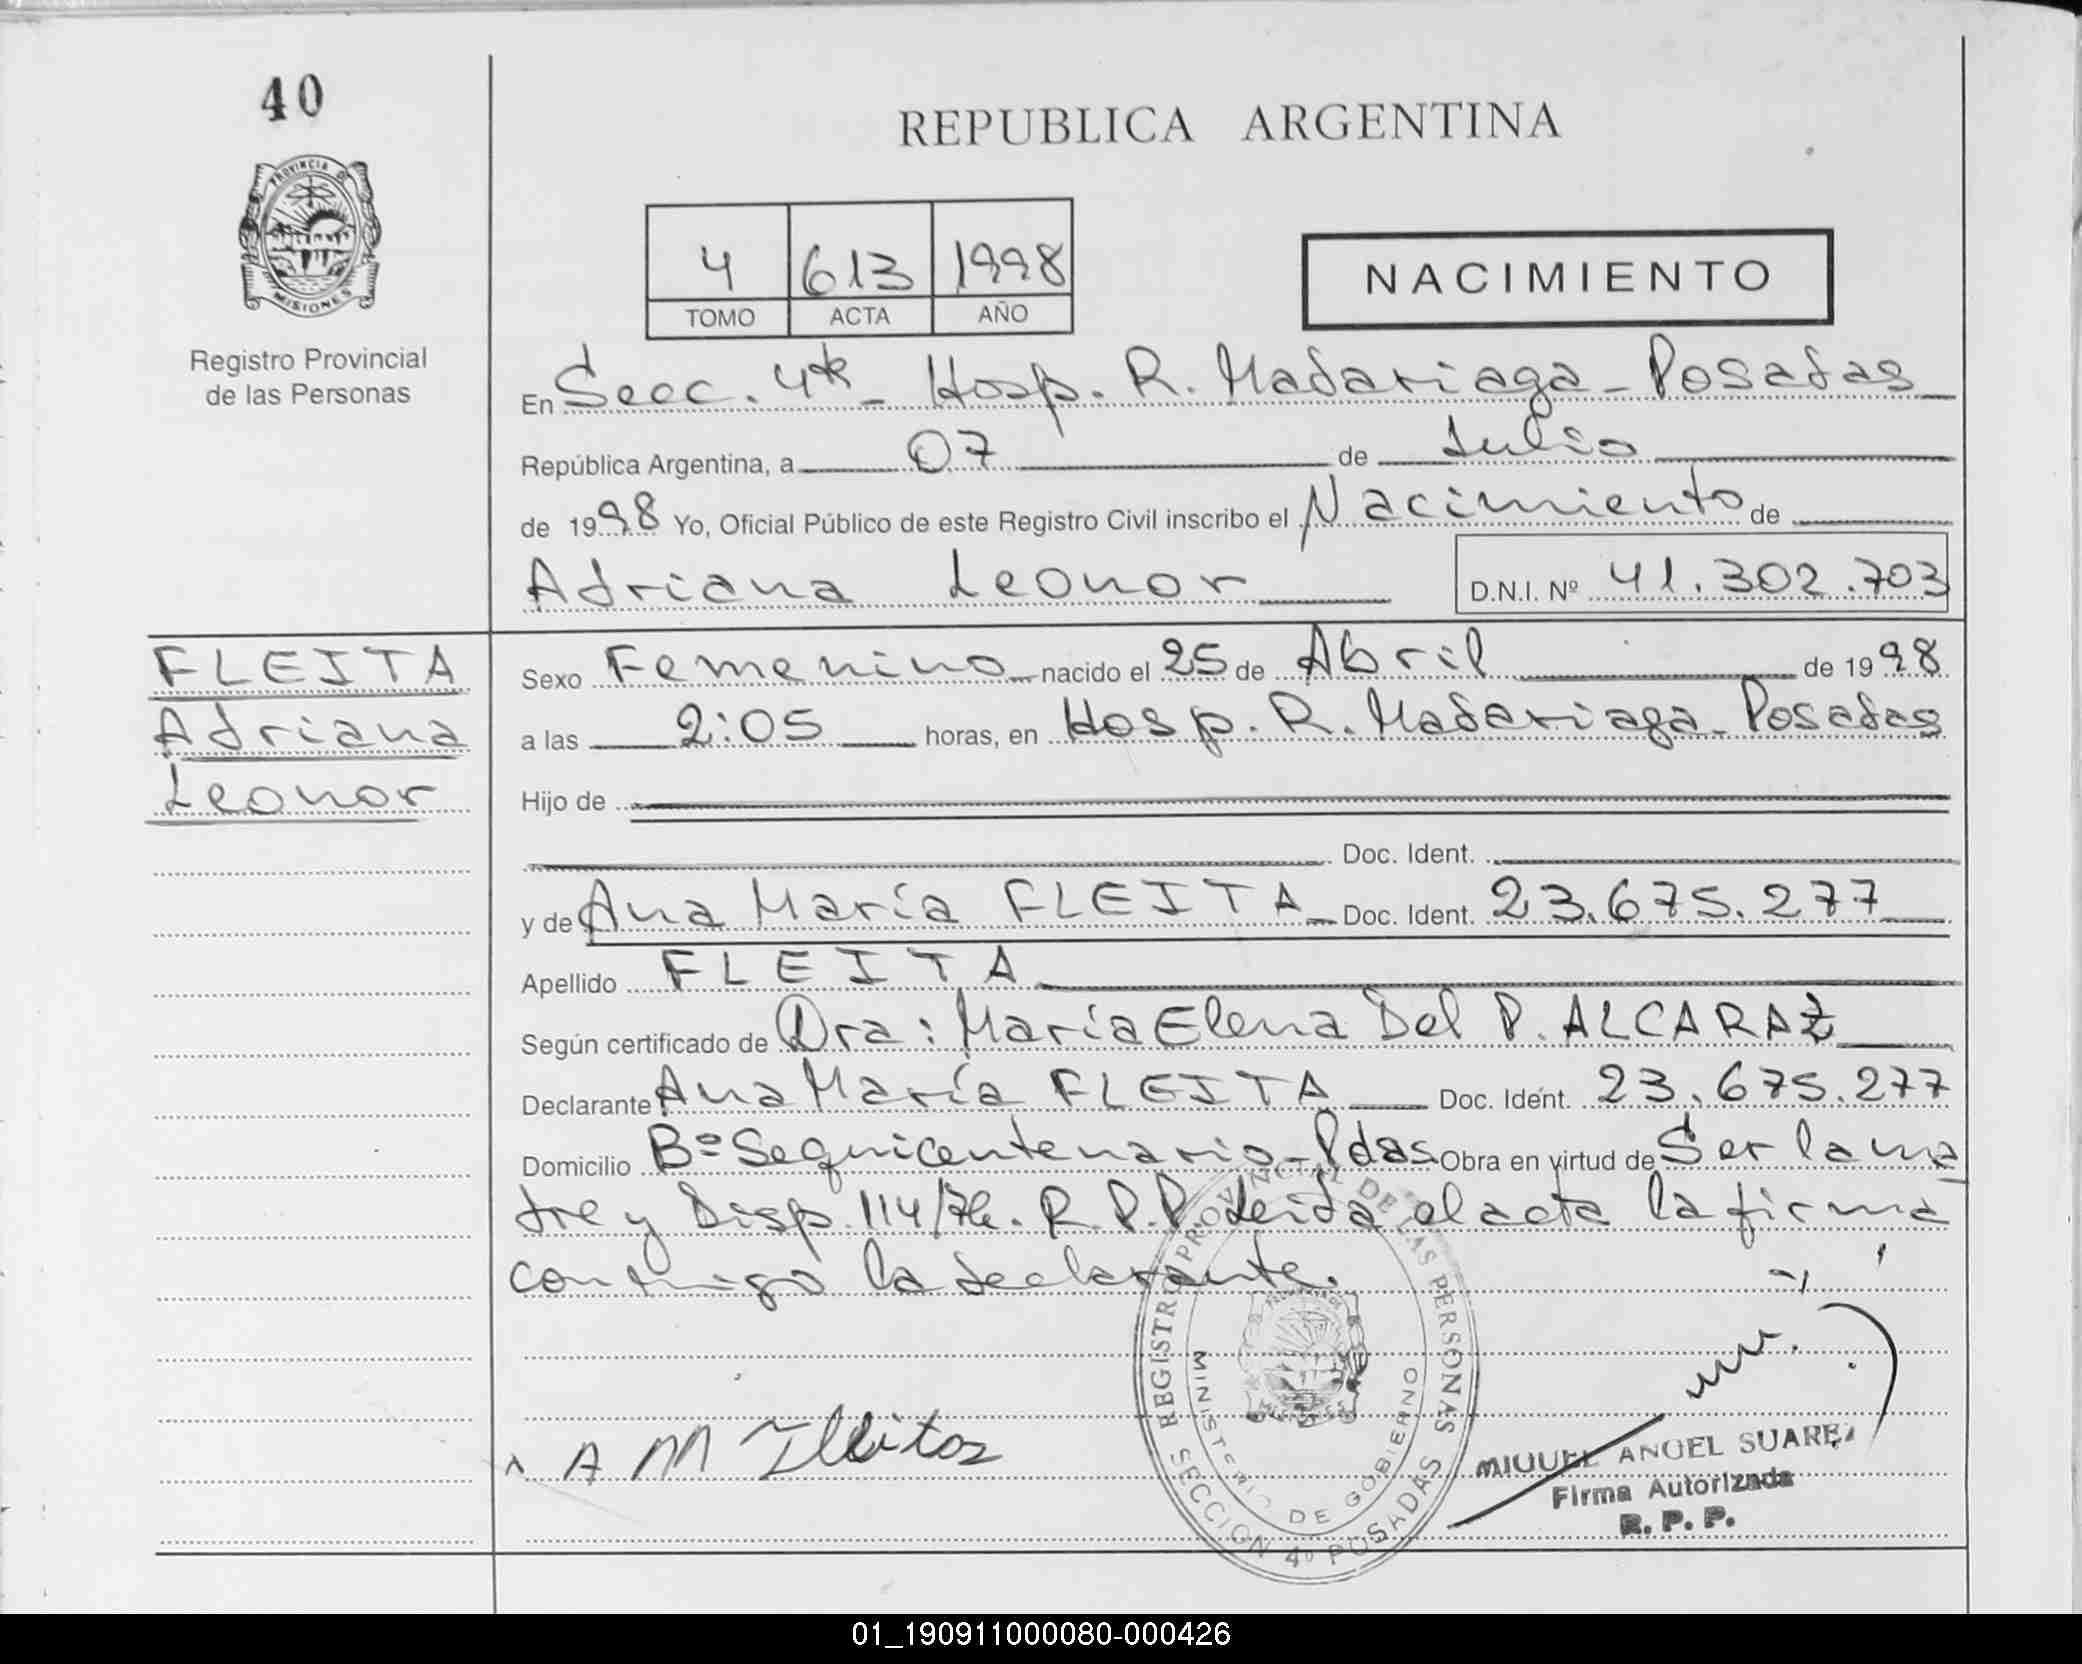 40
PROVINCIA DE
MISIONES
Registro Provincial
de las Personas
REPUBLICA ARGENTINA
4 613 1998
TOMO ACTA AÑO
NACIMIENTO
En Secc. 4ta - Hosp. R. Madariaga - Posadas
República Argentina, a 07 de Julio
de 1998 Yo, Oficial Público de este Registro Civil inscribo el Nacimiento de
Adriana Leonor D.N.I. Nº 41.302.703
FLEITA
Adriana
Leonor
Sexo Femenino nacido el 25 de Abril de 1998
a las 2:05 horas, en Hosp. R. Madariaga - Posadas
Hijo de
Doc. Ident.
y de Ana María FLEITA Doc. Ident. 23.675.277
Apellido FLEITA
Según certificado de Dra: María Elena Del P. ALCARAZ
Declarante Ana María FLEITA Doc. Ident. 23.675.277
Domicilio Bº Sequicentenario - Pdas. Obra en virtud de Ser la ma
dre y Disp. 114/76. R.P.P. Leida el acta la firma
conmigo la declarante.
REGISTRO PROVINCIAL DE LAS PERSONAS
MINISTERIO DE GOBIERNO
SECCION 4º POSADAS
A M
MIGUEL ANGEL SUAREZ
Firma Autorizada
R. P. P.
01_190911000080-000426